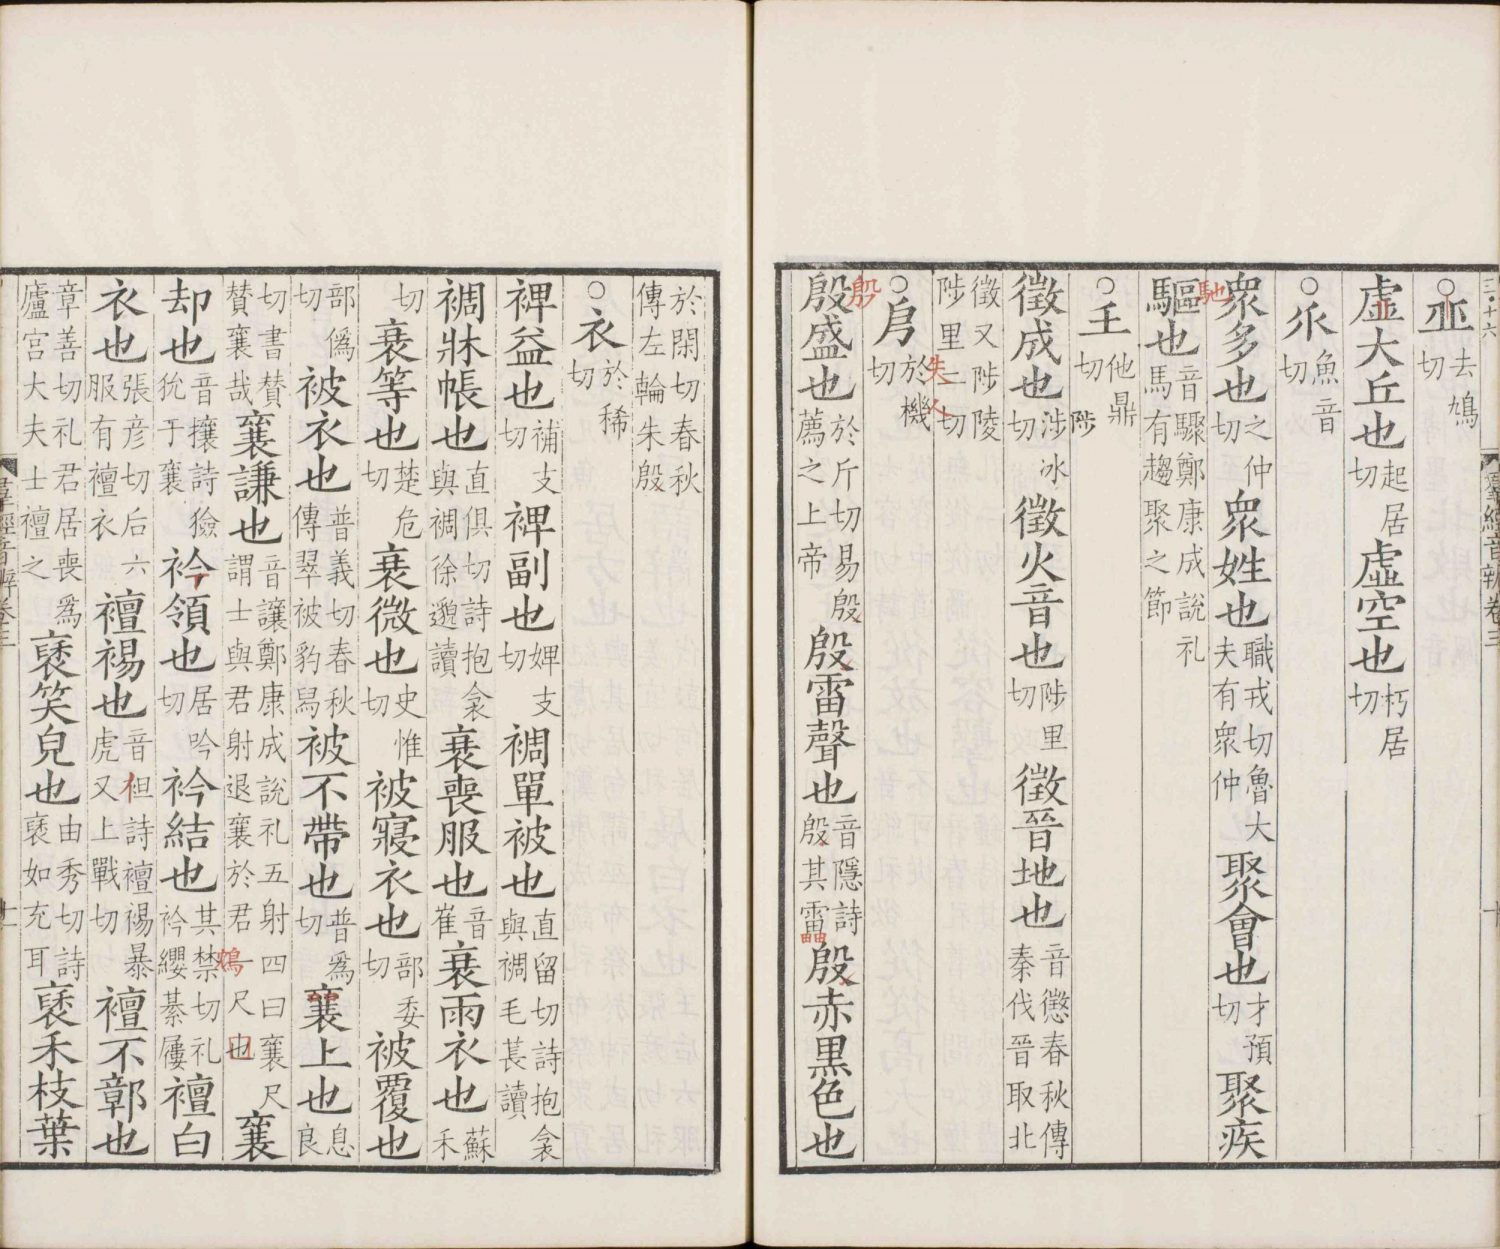 三·十六
羣經音辨卷三
十
○丠去鳩切
虚大丘也起居切虚空也朽居切
○㐺魚音切
衆多也之仲切衆姓也職戎切魯大夫有衆仲聚會也才預切聚疾
驅也音驟鄭康成說礼馬有趨聚之節
馳
○𡈼他鼎切
徵成也涉冰切徵火音也陟里切徵晉地也音懲春秋傳秦伐晉取北
陟
徵又陟陵陟里二切
失人
○㐆於機切
殷盛也於斤切易殷薦之上帝殷雷聲也音隱詩殷其雷殷赤黒色也
於閑切春秋傳左輪朱殷
○衣於稀切
裨益也補支切裨副也婢支切裯單被也直留切詩抱衾與裯毛萇讀
裯牀帳也直俱切詩抱衾與裯徐邈讀衰喪服也音崔衰雨衣也蘇禾
切衰等也楚危切衰微也史惟切被寢衣也部委切被覆也
部僞切被衣也普義切春秋傳翠被豹舄被不帶也普爲切襄上也息良
切書賛賛襄哉襄謙也音讓鄭康成說礼五射四曰襄尺謂士與君射退襄於君一尺也襄
却也音攘詩獫狁于襄衿領也居吟切衿結也其禁切礼衿纓綦屨襢白
衣也張彦切后六服有襢衣襢裼也音袒詩襢裼暴虎又上戰切襢不鄣也
章善切礼君居喪爲廬宫大夫士襢之褎笑皃也由秀切詩褎如充耳褎禾枝葉
羣經音辨卷三
十一